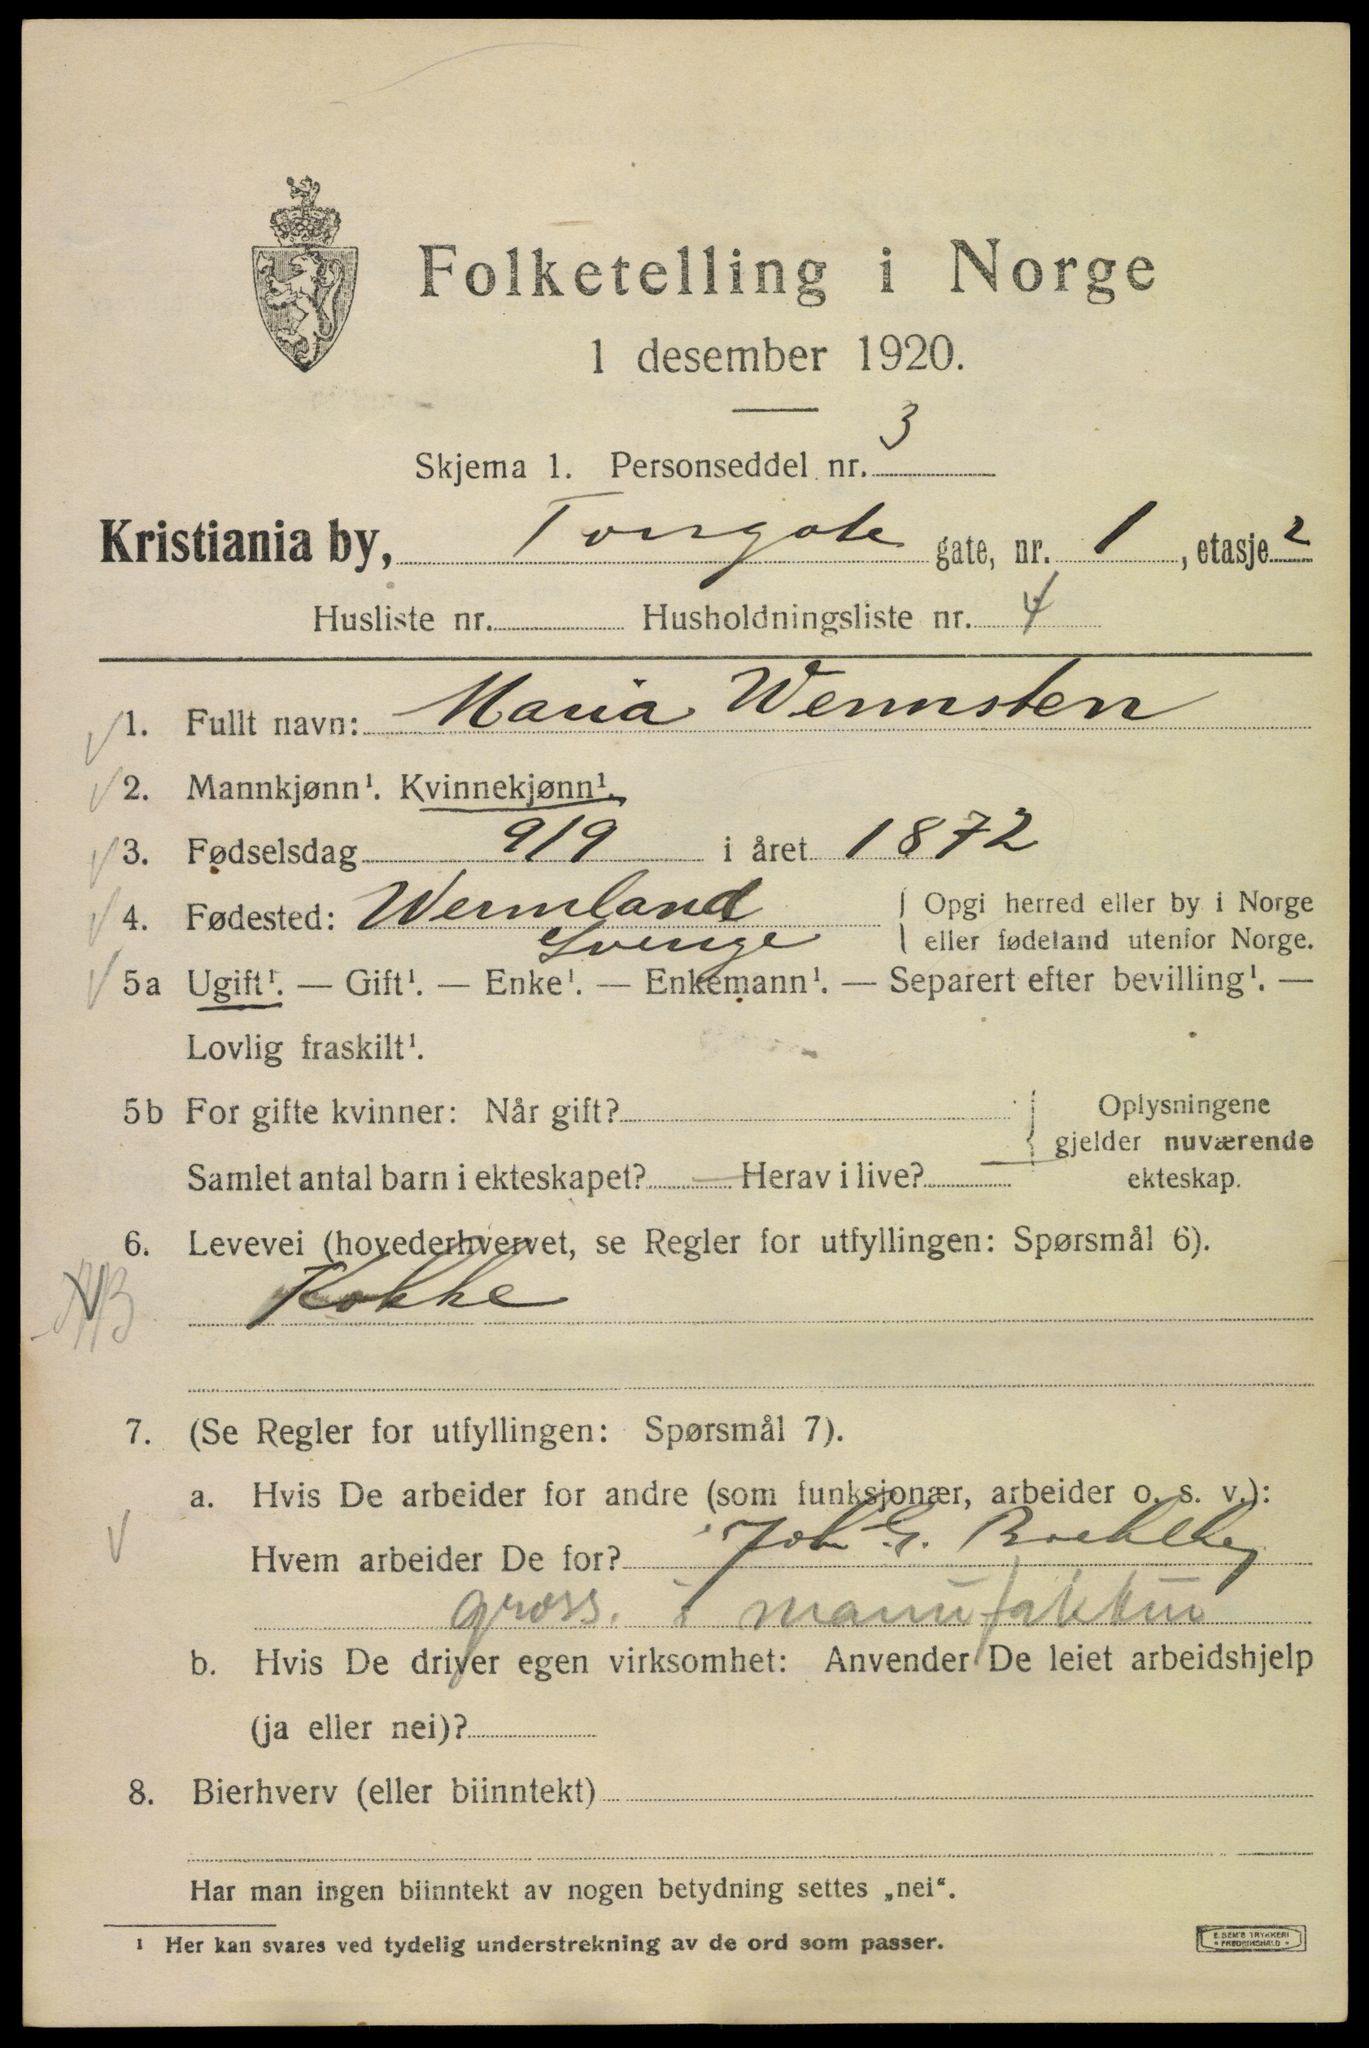 Folketelling i Norge
1 desember 1920.
Skjema 1. Personseddel nr. 3
Kristiania by, Torvgate gate, nr. 1, etasje 2
Husliste nr. Husholdningsliste nr. 4
1. Fullt navn: Maria Wermsten
2. Mannkjønn¹. Kvinnekjønn¹.
3. Fødselsdag 9/9 i året 1872
4. Fødested: Wermland Sverige { Opgi herred eller by i Norge
eller fødeland utenfor Norge.
5a Ugift¹. — Gift¹. — Enke¹. — Enkemann¹. — Separert efter bevilling¹. —
Lovlig fraskilt¹.
5b For gifte kvinner: Når gift? } Oplysningene
gjelder nuværende
ekteskap.
Samlet antal barn i ekteskapet? — Herav i live? —
6. Levevei (hovederhvervet, se Regler for utfyllingen: Spørsmål 6).
Kokke
7. (Se Regler for utfyllingen: Spørsmål 7).
a. Hvis De arbeider for andre (som funksjonær, arbeider o. s. v.):
Hvem arbeider De for? Joh G.
gross. i manufaktur
b. Hvis De driver egen virksomhet: Anvender De leiet arbeidshjelp
(ja eller nei)?
8. Bierhverv (eller biinntekt)
Har man ingen biinntekt av nogen betydning settes „nei“.
¹ Her kan svares ved tydelig understrekning av de ord som passer.
E. SEM'S TRYKKERI
• FREDRIKSHALD •